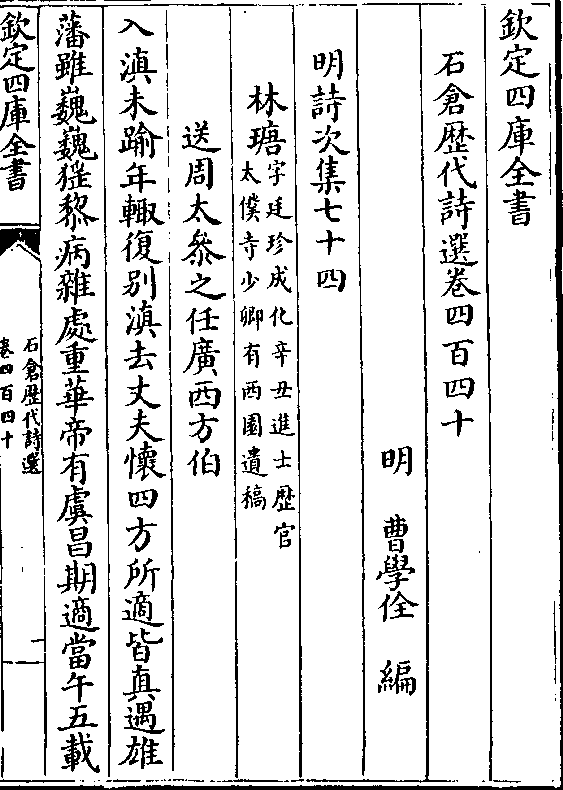 欽定四庫全書
石倉歴代詩選卷四百四十
明 曹學佺 編
明詩次集七十四
林瑭字廷珍成化辛丑進士歴官
太僕寺少卿有西園遺稿
送周太叅之任廣西方伯
入滇未踰年輙復别滇去丈夫懷四方所適皆真遇雄
藩雖巍巍猺黎病雜處重華帝有虞昌期適當午五載
欽定四庫全書
石倉歴代詩選
卷四百四十
一